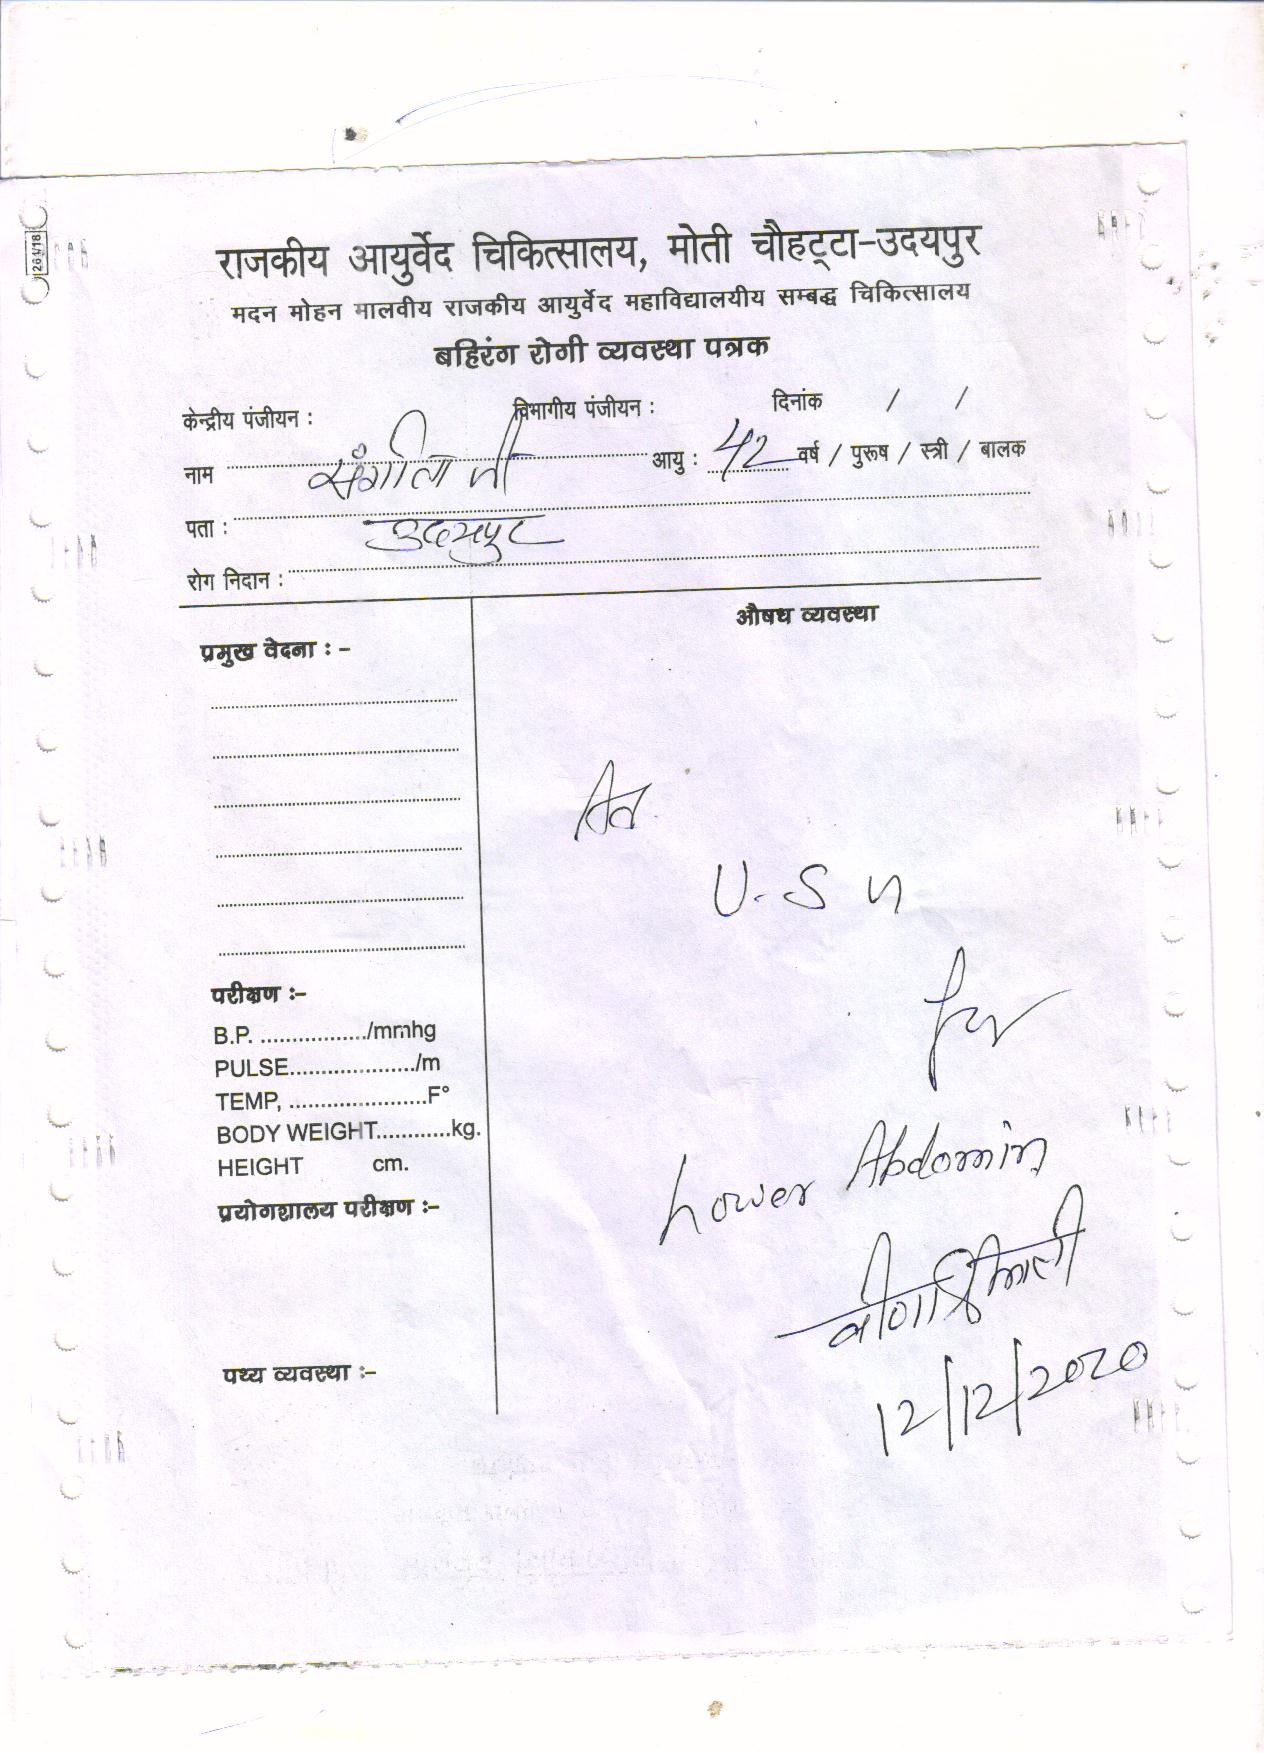 261/18
राजकीय आयुर्वेद चिकित्सालय, मोती चौहट्टा-उदयपुर
मदन मोहन मालवीय राजकीय आयुर्वेद महाविद्यालयीय सम्बद्ध चिकित्सालय
बहिरंग रोगी व्यवस्था पत्रक
केन्द्रीय पंजीयन : विभागीय पंजीयन : दिनांक / /
नाम संगीता जी आयु : 42 वर्ष / पुरूष / स्त्री / बालक
पता : उदयपुर
रोग निदान :
औषध व्यवस्था
प्रमुख वेदना : -
U.S G
For
Lower Abdomin
परीक्षण :-
B.P. ................./mmhg
PULSE..................../m
TEMP, ......................F°
BODY WEIGHT............kg.
HEIGHT cm.
प्रयोगशालय परीक्षण :-
12/12/2020
पथ्य व्यवस्था :-